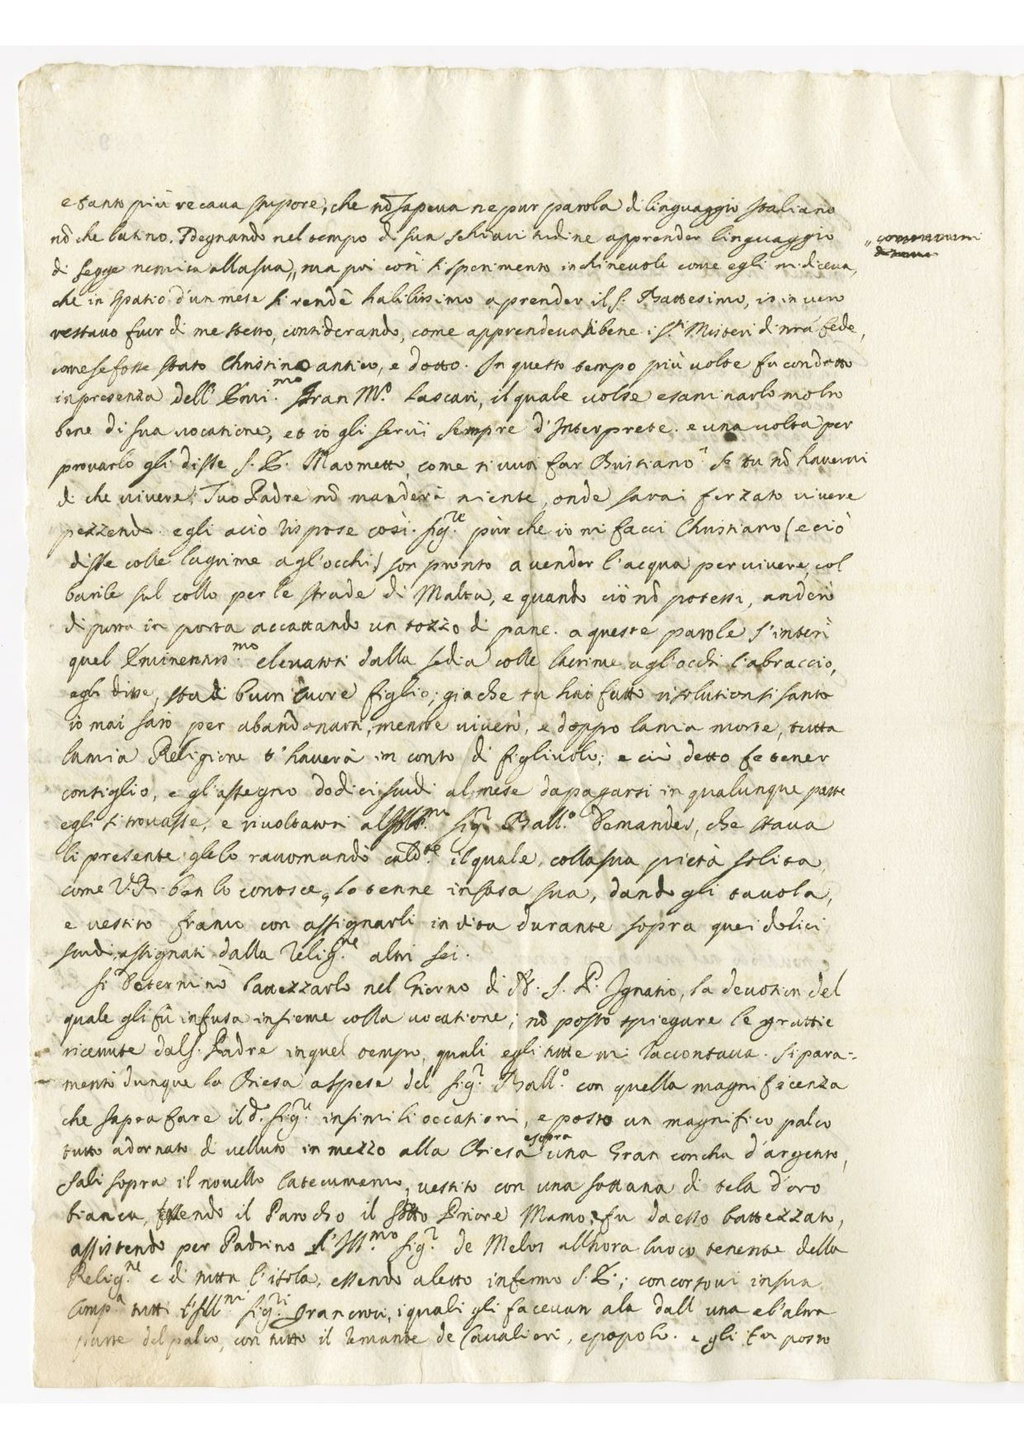 e tanto più recaua stupore, che nõ sapeua ne pur parola di linguaggio Italiano
nõ che latino. Sdegnando nel tempo di sua schiauitudine apprender linguaggio
di legge nemica alla sua,, ma poi così lo sperimento inchineuole come egli mi diceua,
che in spatio d'un mese si rendè habilissimo a prender il S. Battesimo, io in uero
restauo fuor di me stesso, considerando, come apprendeua sì bene i S.ti Misteri di nrã fede,
come se fosse stato Christiano antico, e dotto. In questo tempo più uolte fu condotto
in presenza dell' Emi.mo Gran M.o Lascari, il quale uolse esaminarlo molto
bene di sua uocatione, et io gli seruij sempre d'Interprete. e una uolta per
prouarlo gli disse S. E. Maometto, come ti uuoi far Cristiano? Se tu nõ hauerai
di che uiuere? Tuo Padre nõ manderà niente, onde sarai forzato uiuere
pezzendo. egli a ciò rispose così. Sig.re pur che io mi facci Christiano (e ciò
disse colle lagrime agl'occhi) son pronto a uender l'acqua per uiuere, col
barile sul collo per le strade di Malta, e quando ciò nõ potessi, anderò
di porta in porta accattando un tozzo di pane. a queste parole s'interì
quel Eminentiss.mo eleuatosi dalla sedia colle lacrime agl'occhi l'abracciò,
e gli disse, sta di buon cuore figlio; gia che tu hai fatto risolution sì santa
io mai sarò per abandonarti, mentre uiuerò, e doppo la mia morte, tutta
la mia Religione t'hauerà in conto di figliuolo; e ciò detto fe tener
consiglio, e gli assegnò dodici scudi al mese da pagarsi in qualunque parte
egli si trouasse, e riuoltatosi all'Ill.mo Sig.r Ball.o Demandes, che staua
lì presente glelo racomandò cald.te il quale, colla sua pietà solita,
come V. R. ben lo conosce, lo tenne in casa sua, dandogli tauola,
e uestito franco con assignarli in uita durante sopra quei dodici
scudi assignati dalla Relig.ne altri sei.
Si determinò battezzarlo nel Giorno di N. S. P. Ignatio, la deuotion del
quale gli fù infusa insieme colla uocatione; nõ posso spiegare le grattie
riceuute dal S. Padre in quel tempo, quali egli tutte mi raccontaua. Si para-
mentò dunque la Chiesa a spese del Sig.r Ball.o con quella magnificenza
che sapea fare il d.o Sig.re in simili occationi, e posto un magnifico palco
tutto adornato di uelluto in mezzo alla Chiesa e sopra una Gran concha d'argento,
salì sopra il nouello Catecumeno, uestito con una sottana di tela d'oro
bianca, essendo il Parocho il Sotto Priore Mamo, e fu da esso battezzato,
assistendo per Padrino l'Ill.mo Sig.r de Melos all'hora luoco tenente della
Relig.ne e di tutta l'isola, essendo a letto infermo S. E.; concorsoui in sua
Comp.a tutti l'Ill.mi Sig.ri Grancroci, i quali gli faceuan ala dall'una e l'altra
parte del palco, con tutto il rimante de Caualieri, e popolo. e gli fu posto